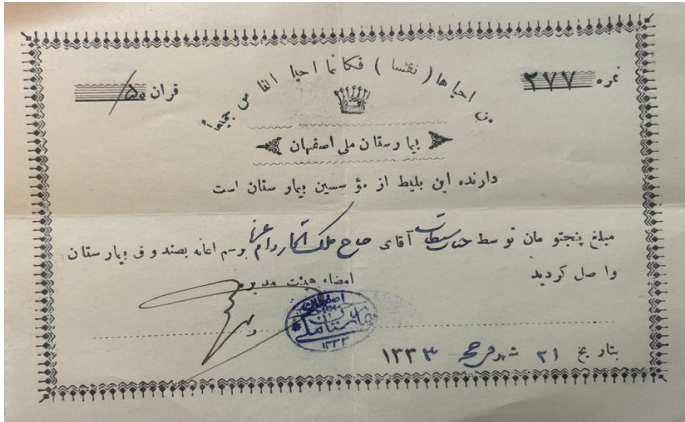 نمره ۲۷۷
من احیاها (نفسا) فکانما احیا الناس جمیعاً
قران ۵۰
بیمارستان ملی اصفهان
دارنده این بلیط از مؤسسین بیمارستان است
مبلغ پنجتومان توسط آقای حاج ملک التجار دام برسم اعانه بصندوق بیمارستان
واصل کردید
امضاء هیئت مدیره
اصفهان
۱۳۳۳
بتاریخ ۲۱ شهر ۱۳۳۳